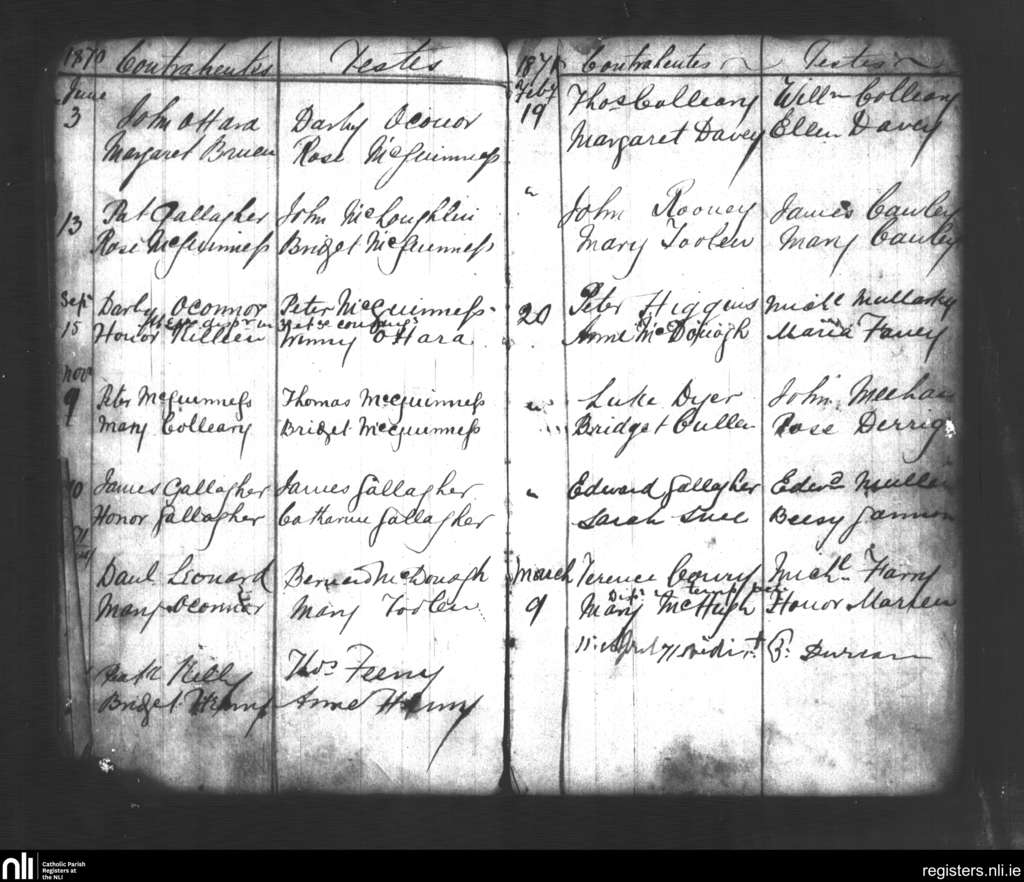 1870 Contrahentes Testes
June
3 John OHara Darby Oconor
Margaret Bruen Rose McGuinness
13 Pat Gallagher John McLoughlin
Rose McGuinness Bridget McGuinness
Sepr Darby Oconnor Peter McGuinness
15 Honor Killeen Winny OHara
Novr
9 Peter McGuinness Thomas McGuinness
Mary Colleary Bridget McGuinness
10 James Gallagher James Gallagher
Honor Gallagher Catharine Gallagher
71
Paul Leonard Bernard McDonagh
Mary Oconnor Mary Toolen
Kelly Thos Feeny
Bridget Anne
1871 Contrahentes Testes
Feby Thos Colleary Willm Colleary
19 Margaret Davey Ellen Davey
" John Rooney James Cawley
Mary Toolen Mary Cawley
20 Peter Higgins Michl Mullarky
Anne McDonogh Maria
" Luke Dyer John Meehan
Bridget Cullen Rose Derrig
" Edward Gallagher Edwd Mullen
Sarah Beesy Gannon
March Terence Conry Michl Farry
9 Mary McHugh Honor Marren
April 71 P. Durcan
nli Catholic Parish
Registers at
the NLI
registers.nli.ie